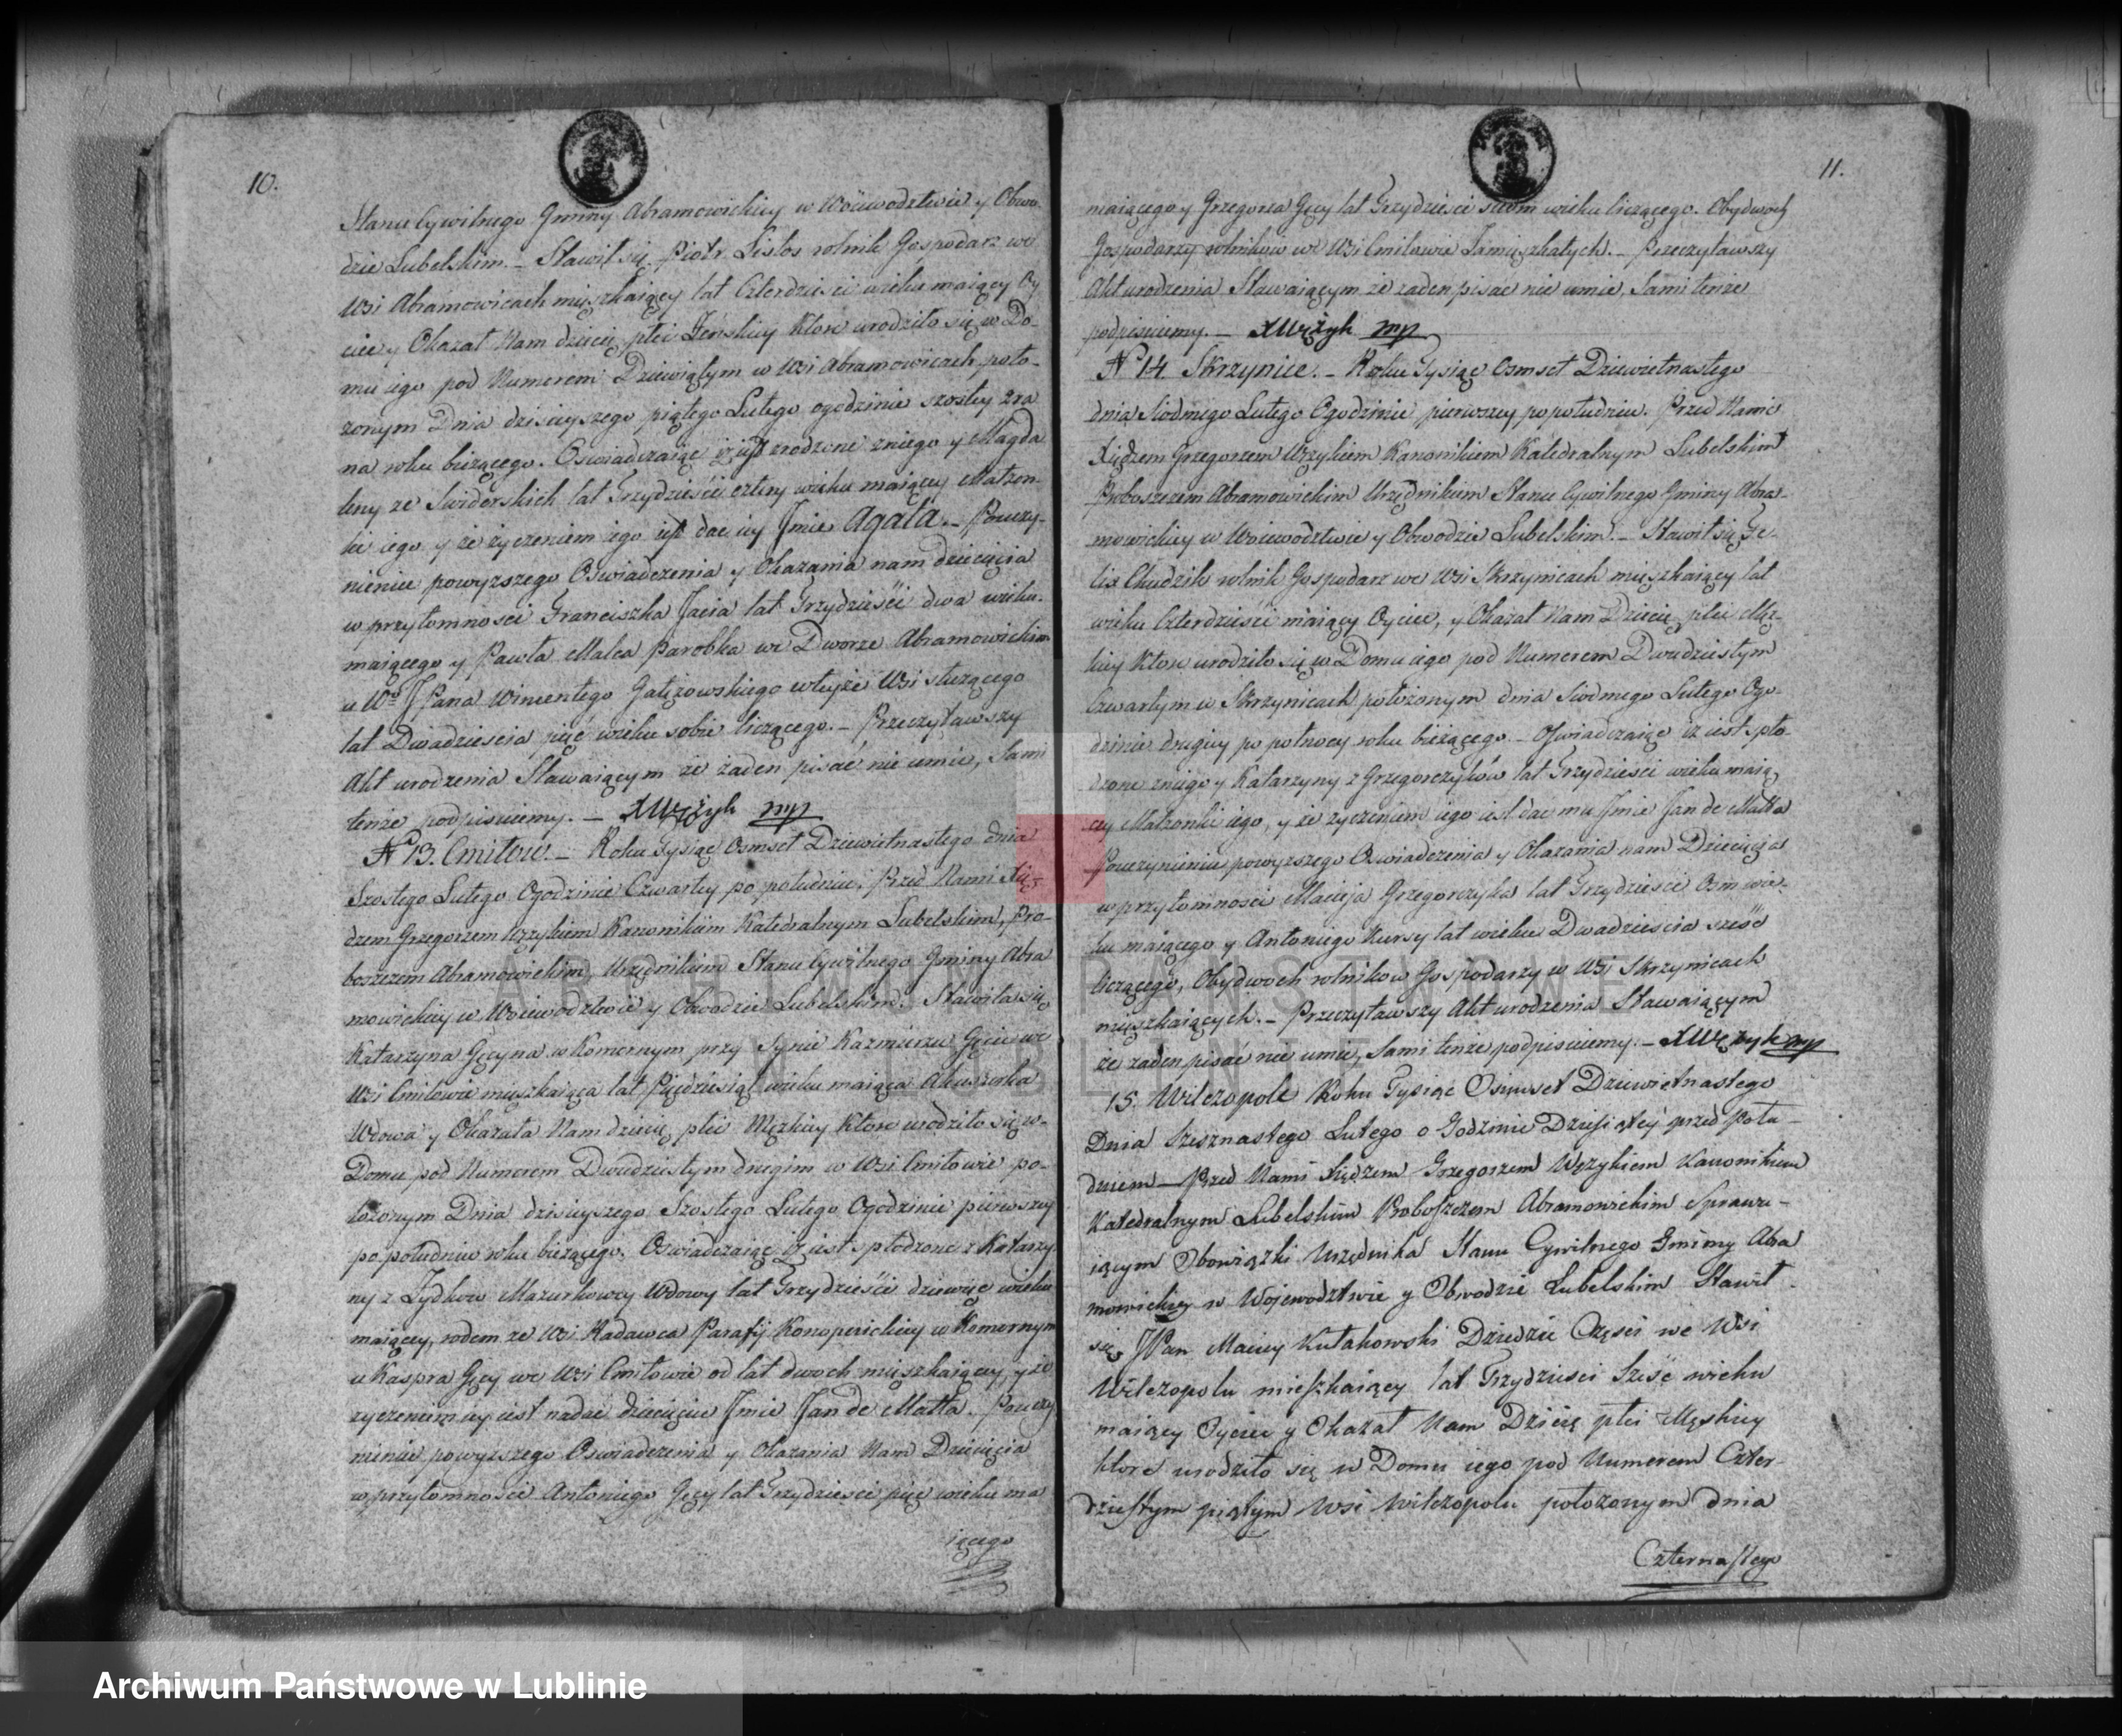 10.
Stanu Cywilnego Gminy Abramowickiey w Woiewodztwie y Obwo-
dzie Lubelskim. – Stawił się Piotr Listos rolnik Gospodarz we
Wsi Abramowicach mięszkaiący lat Czterdzieści wieku maiący Oy
ciec y Okazał Nam dziecię płci Żeńskiey które urodziło się w Do-
mu iego pod Numerem Dziewiątym w Wsi Abramowicach poło-
żonym Dnia dzisieyszego piątego Lutego o godzinie szostey zra
na roku bieżącego. Oswiadczaiąc iż iest zrodzone z niego y Magda
leny ze Swiderskich lat Trzydzieści cztery wieku maiącey Małżon-
ki iego y że życzeniem iego iest dac iey Jmie Agata. – Po uczy-
nieniu powyższego Oświadczenia y Okazania nam dziecięcia
w przytomnosci Franciszka Jacia lat Trzydzieści dwa wieku
maiącego y Pawła Malca Parobka we Dworze Abramowickim
u Wo JPana Wincentego Gałęzowskiego w teyże Wsi służącego
lat Dwadziescia pięć wieku sobie liczącego. – Przeczytawszy
Akt urodzenia Stawaiącym że żaden pisać nie umie, Sami
tenże podpisuiemy. – X Wężyk mp
N° 13. Cmiłow. – Roku Tysiąc Osmset Dziewiętnastego dnia
Szostego Lutego O godzinie Czwartey po południu, Przed Nami Xię-
dzem Grzegorzem Wężykiem Kanonikiem Katedralnym Lubelskim, Pro-
boszczem Abramowickim, Urzędnikiem Stanu Cywilnego Gminy Abra
mowickiey w Woiewodztwie y Obwodzie Lubelskim. Stawiła się
Katarzyna Gęcyna w Komornym przy Synie Kazmierzu Gęciu we
Wsi Cmiłowie mięszkaiąca lat Pięćdziesiąt wieku maiąca Akuszerka
Wdowa y Okazała Nam dziecię płci Męzkiey które urodziło się w-
Domu pod Numerem Dwudziestym drugim w Wsi Cmiłowie po-
łożonym Dnia dzisieyszego Szostego Lutego O godzinie pierwszey
po południu roku bieżącego. Oswiadczaiąc iż iest spłodzone z Katarzy
ny z Żydkow Mazurkowey Wdowy lat Trzydzieści dziewięć wieku
maiącey, rodem ze Wsi Radawca Parafij Konopnickiey w Komornym
u Kaspra Gęcy we Wsi Cmiłowie od lat dwoch mięszkaiącey, y że
życzeniem iey iest nadać dziecięciu Jmie Jan de Matta. Po uczy
nieniu powyższego Oswiadczenia y Okazania Nam Dziecięcia
w przytomnosci Antoniego Gęcy lat Trzydzieści pięć wieku ma
iącego
11.
maiącego y Grzegorza Gęcy lat Trzydzieści siedm wieku liczącego. Obydwoch
Gospodarzy rolnikow we Wsi Cmiłowie Zamięszkałych. – Przeczytawszy
Akt urodzenia Stawaiącym że żaden pisac nie umie, Sami tenże
podpisuiemy. – X Wężyk mp
N° 14 Skrzynice. – Roku Tysiąc Osmset Dziewiętnastego
dnia Siodmego Lutego O godzinie pierwszey po południu. Przed Nami
Xiędzem Grzegorzem Wężykiem Kanonikiem Katedralnym Lubelskim
Proboszczem Abramowickim Urzędnikiem Stanu Cywilnego Gminy Abra-
mowickiey w Woiewodztwie y Obwodzie Lubelskim. – Stawił się Fe-
lix Chudzik rolnik Gospodarz we Wsi Skrzynicach mięszkaiący lat
wieku Czterdzieści maiący Oyciec, y Okazał Nam Dziecię płci Męz-
kiey które urodziło się w Domu iego pod Numerem Dwudziestym
Czwartym w Skrzynicach położonym dnia Siodmego Lutego O go-
dzinie drugiey po połnocy roku bieżącego. – Oswiadczaiąc iż iest spło-
dzone z niego y Katarzyny z Grzegorczyków lat Trzydzieści wieku maią
cey Małżonki iego, y że życzeniem iego iest dać mu Jmie Jan de Matta
Po uczynieniu powyższego Oswiadczenia y Okazania nam Dziecięcia
w przytomnosci Macieja Grzegorczyka lat Trzydzieści Osm wie-
ku maiącego y Antoniego Kursy lat wieku Dwadziescia sześć
liczącego, Obydwoch rolnikow Gospodarzy w Wsi Skrzynicach
mięszkaiących. – Przeczytawszy Akt urodzenia Stawaiącym
że żaden pisać nie umie, Sami tenże podpisuiemy. – X Wężyk mp
15. Wilczopole Roku Tysiąc Osmset Dziewiętnastego
Dnia Szesznastego Lutego o Godzinie Dziesiątéy przed Połu-
dniem – Przed Nami Xiędzem Grzegorzem Wężykiem Kanonikiem
Katedralnym Lubelskim Proboszczem Abramowickim Sprawu-
iącym Obowiązki Urzędnika Stanu Cywilnego Gminy Abra
mowickiey w Wojewodztwie y Obwodzie Lubelskim Stawił
się JPan Maciey Kułakowski Dziedzic Częsci we Wsi
Wilczopolu mieszkaiący lat Trzydziesci Sześć wieku
maiący Oyciec y Okazał Nam Dziecię płci Męskiey
ktore urodziło się w Domu iego pod Numerem Czter-
dziestym piątym Wsi Wilczopolu położonym dnia
Czternastego
ARCHIWUM PAŃSTWOWE
W LUBLINIE
Archiwum Państwowe w Lublinie